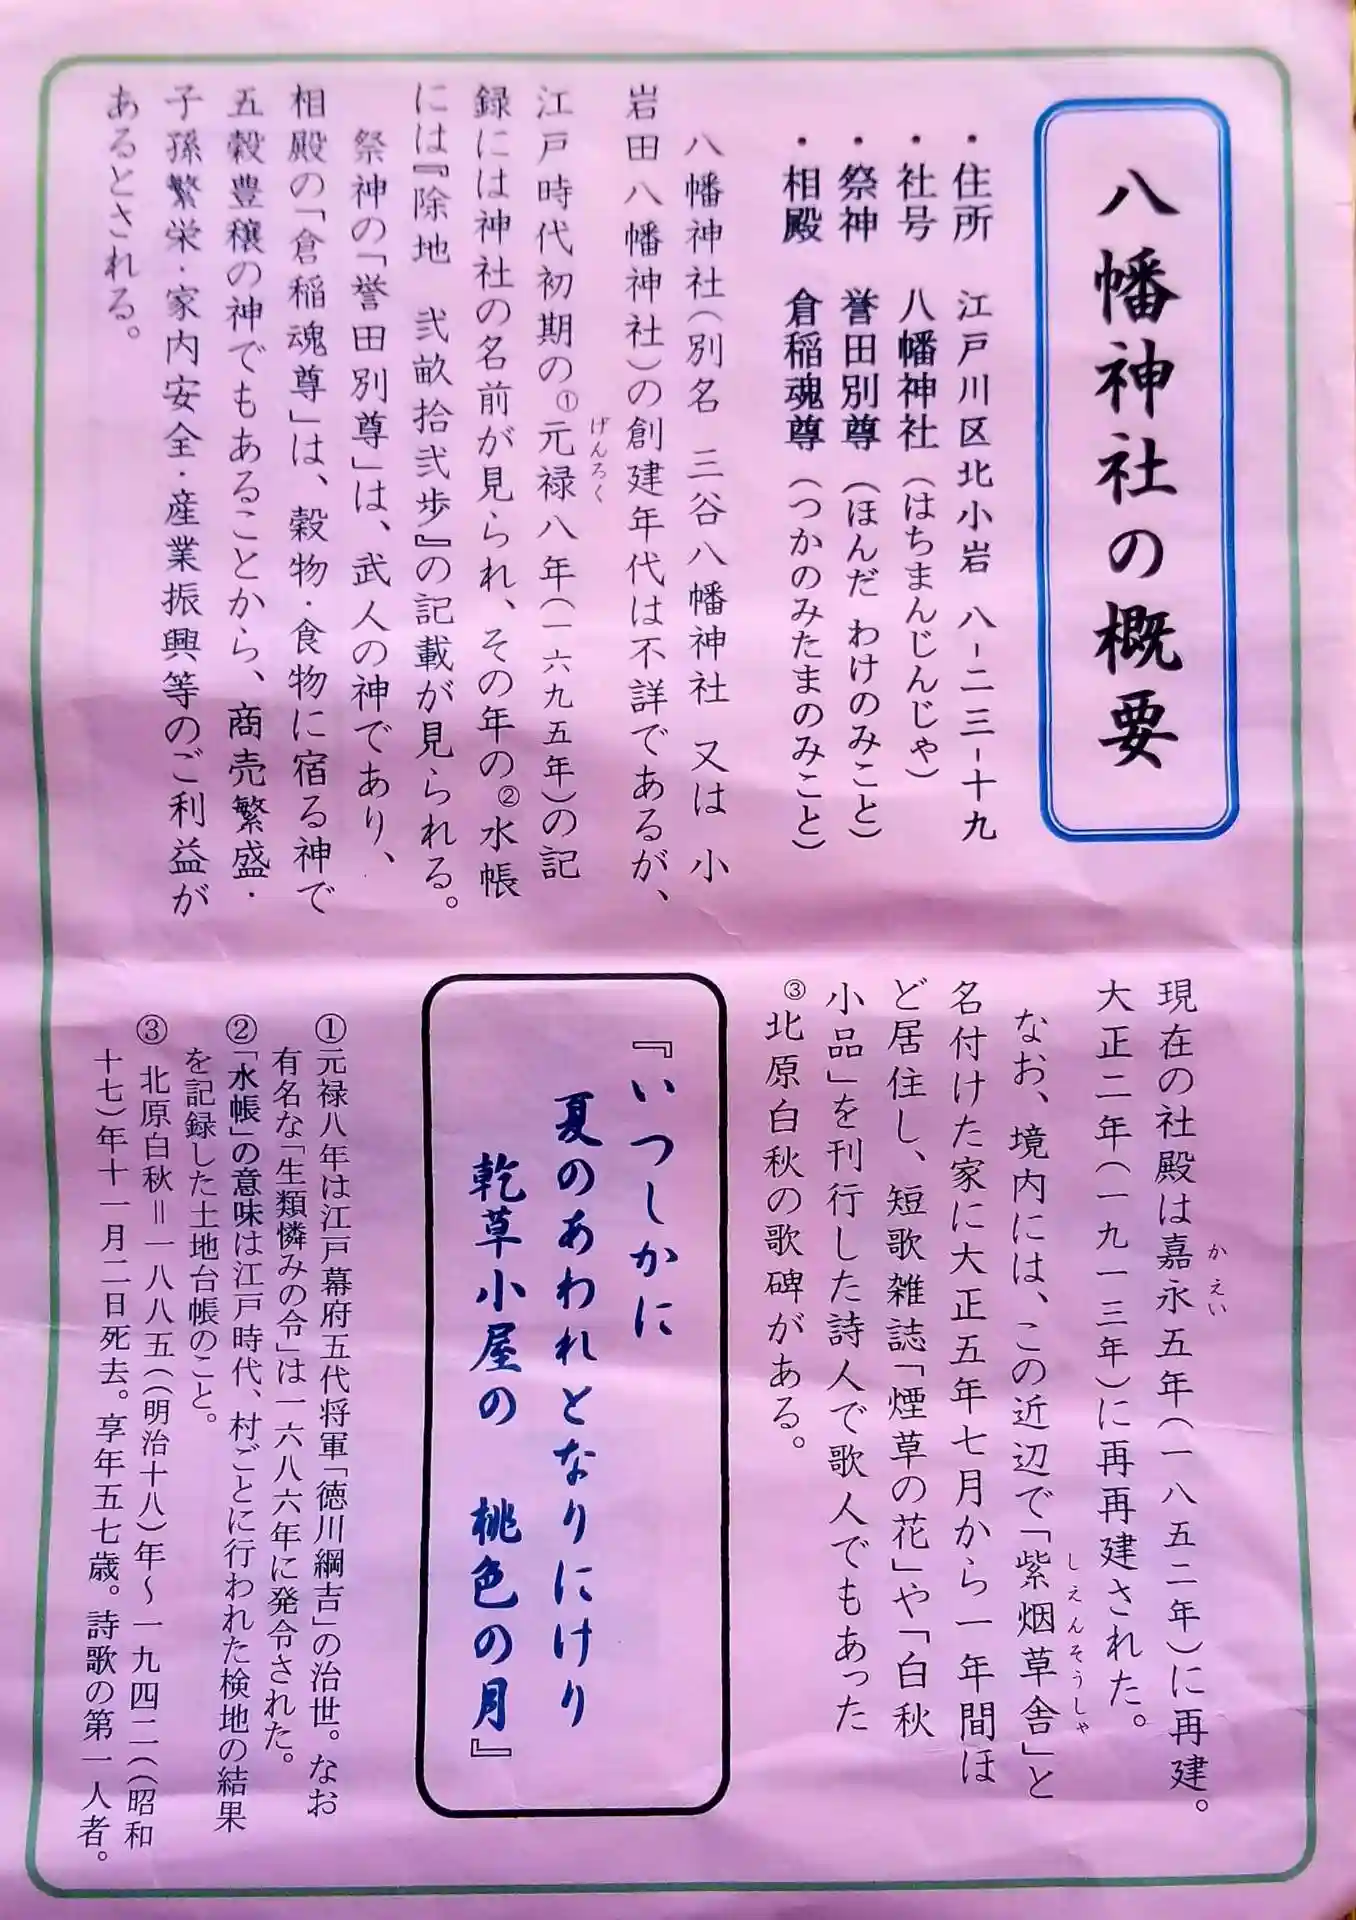 八幡神社の概要
・住所　江戸川区北小岩　八-二三-十九
・社号　八幡神社（はちまんじんじゃ）
・祭神　誉田別尊（ほんだ わけのみこと）
・相殿　倉稲魂尊（つかのみたまのみこと）
八幡神社（別名　三谷八幡神社　又は　小
岩田八幡神社）の創建年代は不詳であるが、
江戸時代初期の①元禄八年（一六九五年）の記
げんろく
録には神社の名前が見られ、その年の②水帳
には『除地　弐畝拾弐歩』の記載が見られる。
祭神の「誉田別尊」は、武人の神であり、
相殿の「倉稲魂尊」は、穀物・食物に宿る神で
五穀豊穣の神でもあることから、商売繁盛・
子孫繁栄・家内安全・産業振興等のご利益が
あるとされる。
現在の社殿は嘉永五年（一八五二年）に再建。
かえい
大正二年（一九一三年）に再再建された。
なお、境内には、この近辺で「紫烟草舎」と
しえんそうしゃ
名付けた家に大正五年七月から一年間ほ
ど居住し、短歌雑誌「煙草の花」や「白秋
小品」を刊行した詩人で歌人でもあった
③北原白秋の歌碑がある。
『いつしかに
夏のあわれとなりにけり
乾草小屋の　桃色の月』
①元禄八年は江戸幕府五代将軍「徳川綱吉」の治世。なお
有名な「生類憐みの令」は一六八六年に発令された。
②「水帳」の意味は江戸時代、村ごとに行われた検地の結果
を記録した土地台帳のこと。
③　北原白秋＝一八八五（（明治十八）年～一九四二（（昭和
十七）年十一月二日死去。享年五七歳。詩歌の第一人者。